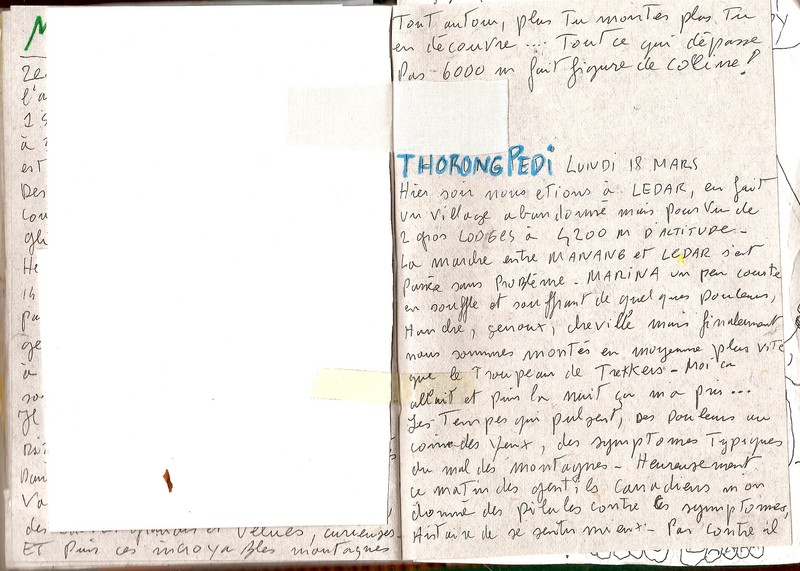 M
2e
l'a
à
est
Des
cou
gli
He
14
pa
ge
à
so
Il
Dan
Va
des et velues, curieuses-
ET puis ces incroyables montagnes
Tout autour, plus Tu montes plus Tu
en découvre .... Tout ce qui dépasse
Pas 6000 m fait figure de colline!
THORONG PEDI LUNDI 18 MARS
Hier soir nous etions à LEDAR, en fait
un village abandonné mais pourvu de
2 gros LODGES à 4200 M D'ALTITUDE-
La marche entre MANANG et LEDAR s'est
Passée sans Problème- MARINA un peu courte
en souffle et souffrant de quelques Douleurs,
Hanche, genoux, cheville mais finalement
nous sommes montés en moyenne plus vite
que le Troupeau de Trekkers- Moi ça
allait et puis la nuit ça m'a pris...
Les Tempes qui pulsent, Des Douleurs au
coin des yeux, des symptomes Typiques
du mal des montagnes- Heureusement
ce matin des gentils Canadiens m'on
donné des pilules contre les symptomes,
Histoire de se sentir mieux- Par contre il